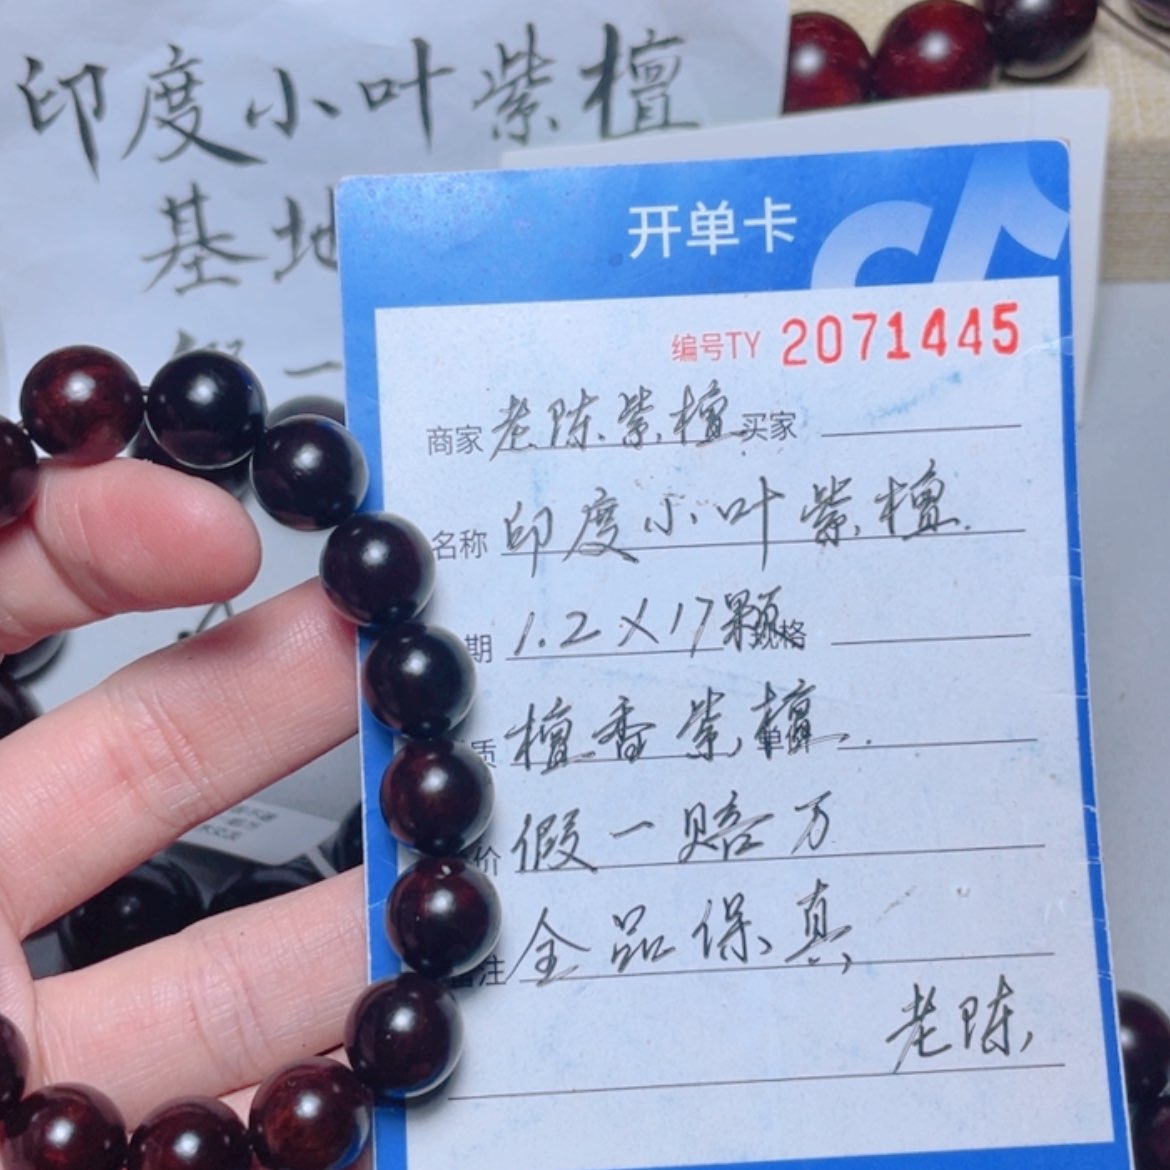 印度小叶紫檀
基地
假一
开单卡
编号TY 2071445
商家 老陈紫檀 买家
名称 印度小叶紫檀
期 1.2×17颗 规格
质 檀香紫檀
价 假一赔万
备注 全品保真
老陈